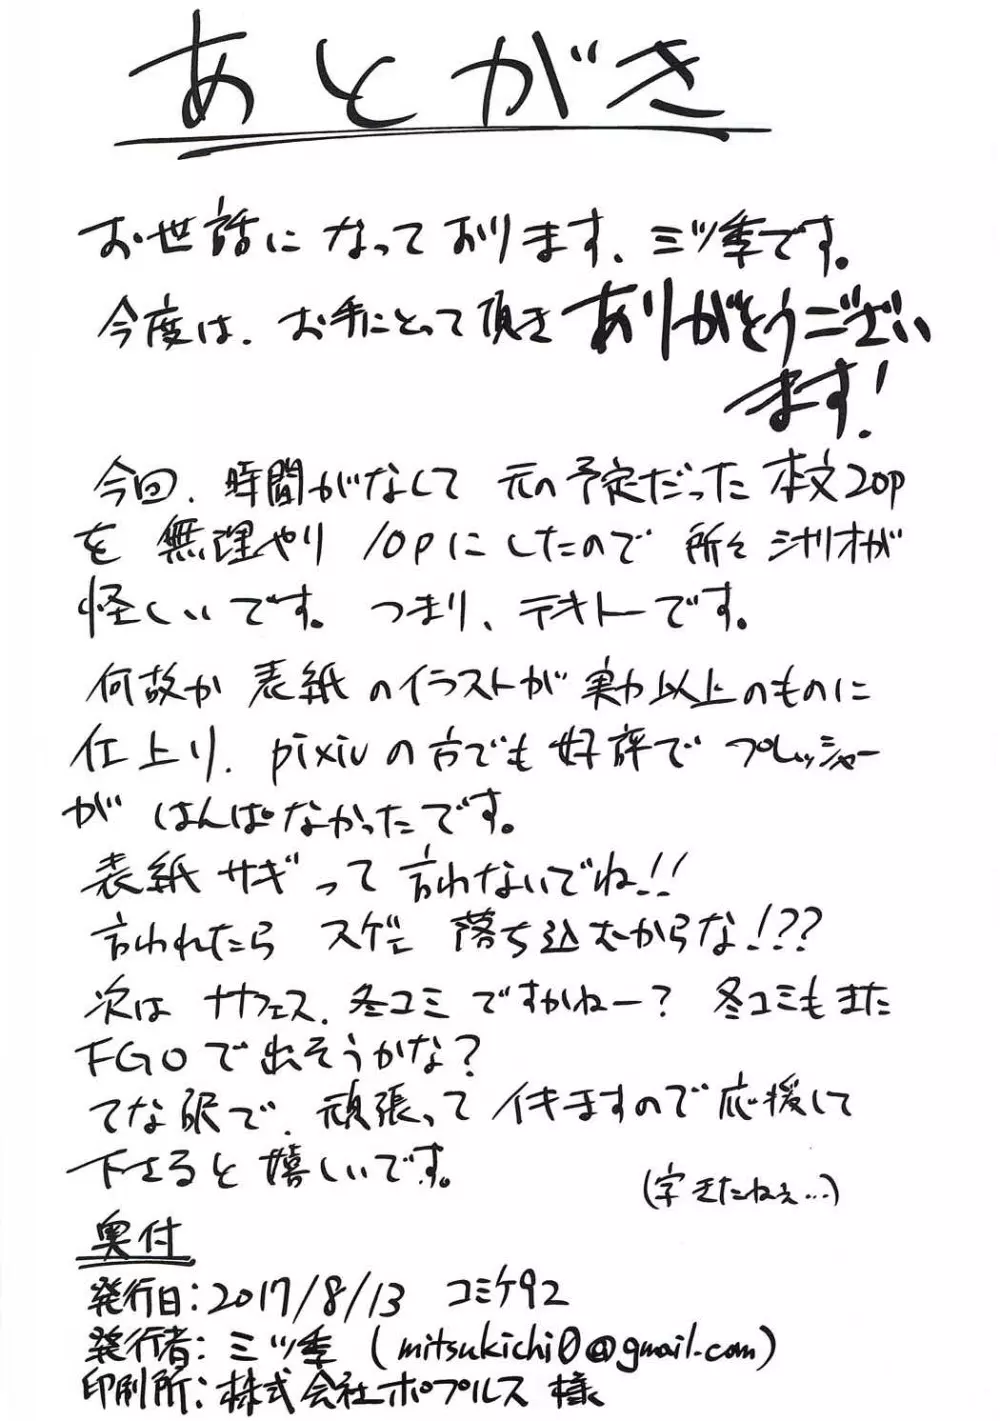 あとがき
お世話になっております、三ツ季です。
今度は、お手にとって頂きありがとうござい
ます!
今回、時間がなくて元の予定だった本文20p
を無理やり10pにしたので所々シナリオが
怪しいです。つまり、テキトーです。
何故か表紙のイラストが実力以上のものに
仕上り、pixivの方でも好評でプレッシャー
がはんぱなかったです。
表紙サギって言わないでね!!
言われたらスゲェ落ち込むからな!??
次はサフェス、冬コミですかねー?冬コミもまた
FGOで出そうかな?
てな訳で、頑張ってイキますので応援して
下さると嬉しいです。
(字きたねぇ…)
奥付
発行日:2017/8/13 コミケ92
発行者:三ツ季(mitsukichi0@gmail.com)
印刷所:株式会社ポプルス 様